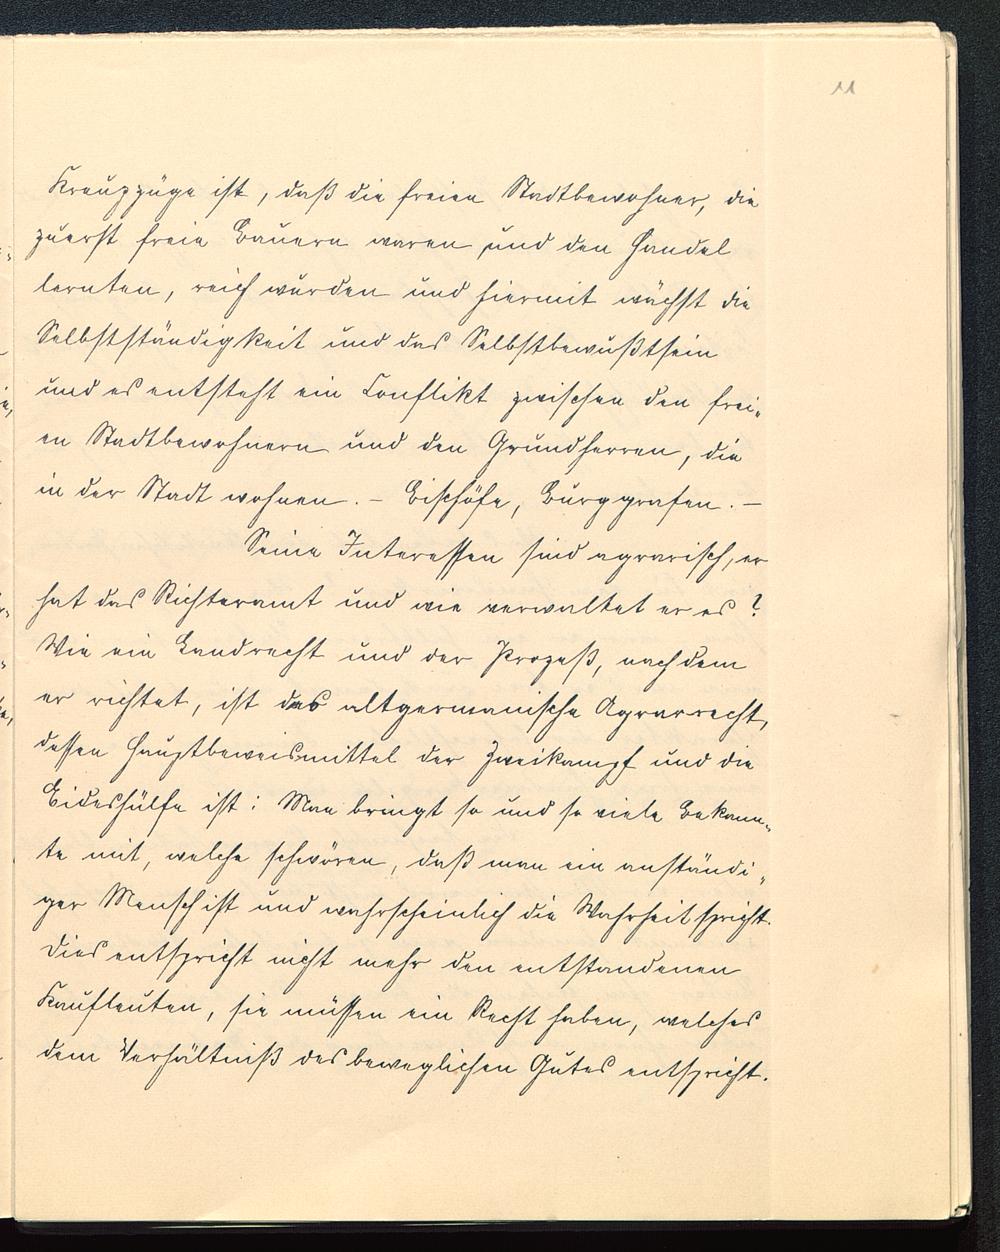 11
Kreuzzüge ist, daß die freien Stadtbewohner, die
zuerst freie Bauern waren und den Handel
lernten, reich wurden und hiermit wächst die
Selbstständigkeit und das Selbstbewußtsein
und es entsteht ein Conflikt zwischen den frei„
en Stadtbewohnern und den Grundherren, die
in der Stadt wohnen. – Bischöfe, Burggrafen. –
Seine Interessen sind agrarisch, er
hat das Richteramt und wie verwaltet er es?
Wie ein Landrecht und der Prozeß, nach dem
er richtet, ist das altgermanische Agrarrecht,
dessen Hauptbeweismittel der Zweikampf und die
Eideshülfe ist: Man bringt so und so viele Bekann„
te mit, welche schwören, daß man ein anständi„
ger Mensch ist und wahrscheinlich die Wahrheit spricht.
Dies entspricht nicht mehr den entstandenen
Kaufleuten, sie müssen ein Recht haben, welches
dem Verhältniß des beweglichen Gutes entspricht.